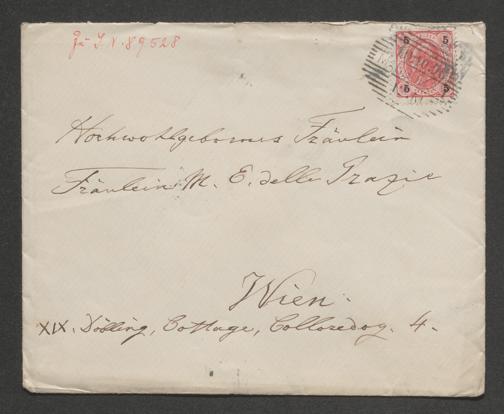 Zu I.N. 89528
5 5
5 5
Hochwohlgebornes Fräulein
Fräulein M. E. delle Grazie
Wien.
XIX. Döbling, Cottage, Colloredog. 4.